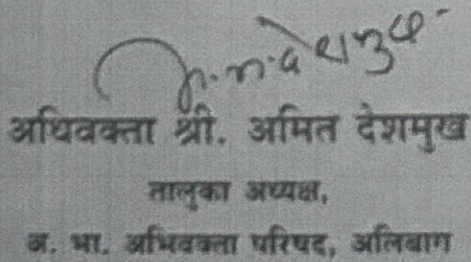 देशमुख
अधिवक्ता श्री. अमित देशमुख
तालुका अध्यक्ष,
अ. भा. अभिवक्ता परिषद, अलिबाग